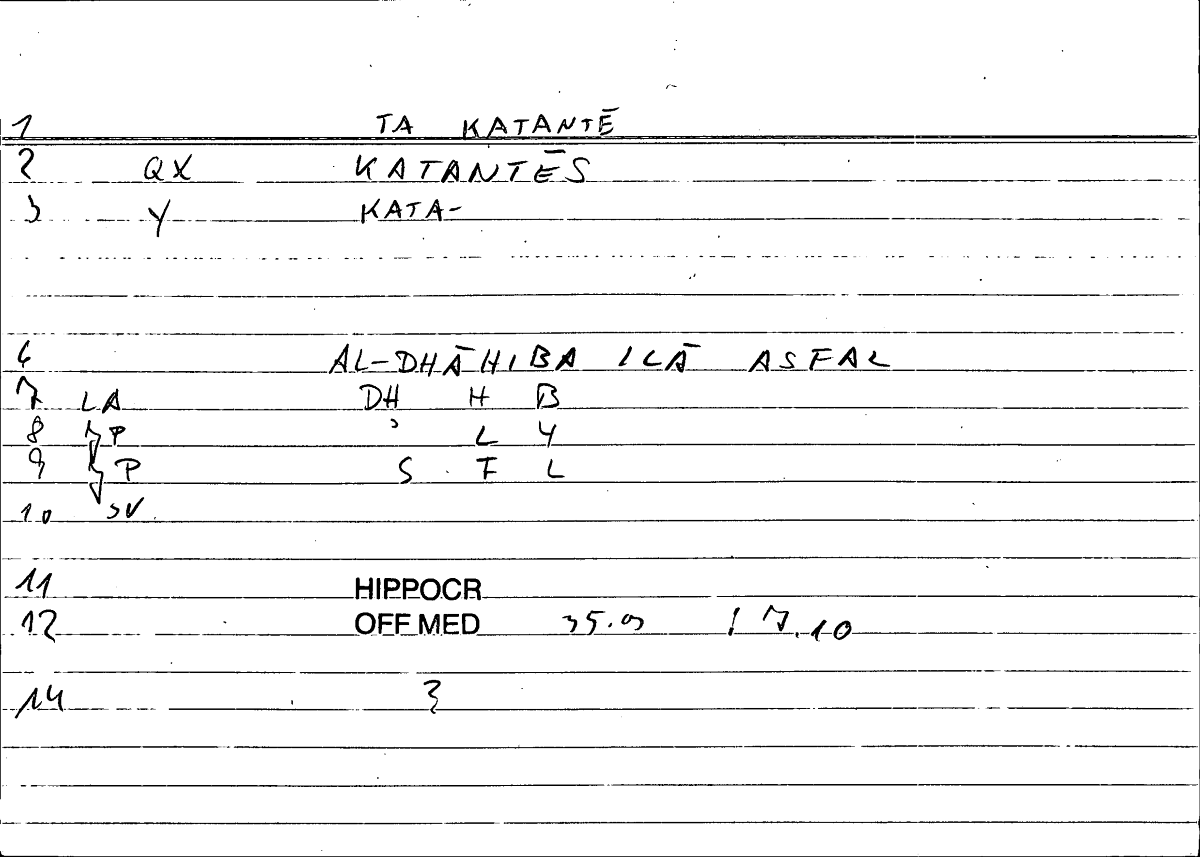 1 TA KATANTĒ
2 QX KATANTĒS
3 Y KATA-
6 AL-DHĀHIBA ILĀ ASFAL
7 LA DH H B
8 P ʾ L Y
9 P S F L
10 SV
11 HIPPOCR
12 OFF MED 35.9 17.10
14 3